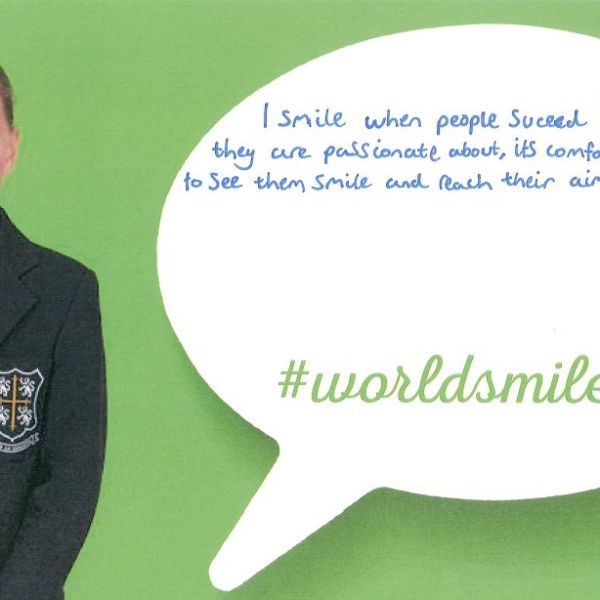 I smile when people suceed
they are passionate about, its
to see them smile and reach their
#worldsmile